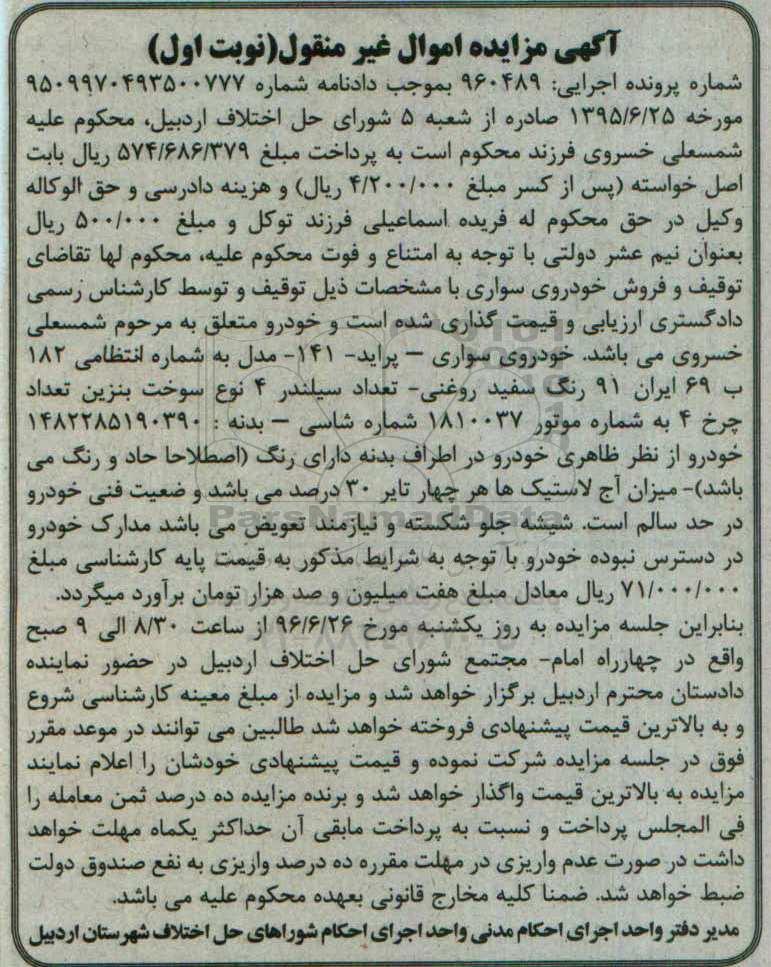 آگهی مزایده اموال غیر منقول(نوبت اول)
شماره پرونده اجرایی: ۹۶۰۴۸۹ بموجب دادنامه شماره ۹۵۰۹۹۷۰۴۹۳۵۰۰۷۷۷
مورخه ۱۳۹۵/۶/۲۵ صادره از شعبه ۵ شورای حل اختلاف اردبیل، محکوم علیه
شمسعلی خسروی فرزند محکوم است به پرداخت مبلغ ۵۷۴/۶۸۶/۳۷۹ ریال بابت
اصل خواسته (پس از کسر مبلغ ۴/۲۰۰/۰۰۰ ریال) و هزینه دادرسی و حق الوکاله
وکیل در حق محکوم له فریده اسماعیلی فرزند توکل و مبلغ ۵۰۰/۰۰۰ ریال
بعنوان نیم عشر دولتی با توجه به امتناع و فوت محکوم علیه، محکوم لها تقاضای
توقیف و فروش خودروی سواری با مشخصات ذیل توقیف و توسط کارشناس رسمی
دادگستری ارزیابی و قیمت گذاری شده است و خودرو متعلق به مرحوم شمسعلی
خسروی می باشد. خودروی سواری – پراید- ۱۴۱- مدل به شماره انتظامی ۱۸۲
ب ۶۹ ایران ۹۱ رنگ سفید روغنی- تعداد سیلندر ۴ نوع سوخت بنزین تعداد
چرخ ۴ به شماره موتور ۱۸۱۰۰۳۷ شماره شاسی – بدنه : ۱۴۸۲۲۸۵۱۹۰۳۹۰
خودرو از نظر ظاهری خودرو در اطراف بدنه دارای رنگ (اصطلاحا حاد و رنگ می
باشد)- میزان آج لاستیک ها هر چهار تایر ۳۰ درصد می باشد و ضعیت فنی خودرو
در حد سالم است. شیشه جلو شکسته و نیازمند تعویض می باشد مدارک خودرو
در دسترس نبوده خودرو با توجه به شرایط مذکور به قیمت پایه کارشناسی مبلغ
۷۱/۰۰۰/۰۰۰ ریال معادل مبلغ هفت میلیون و صد هزار تومان برآورد میگردد.
بنابراین جلسه مزایده به روز یکشنبه مورخ ۹۶/۶/۲۶ از ساعت ۸/۳۰ الی ۹ صبح
واقع در چهارراه امام- مجتمع شورای حل اختلاف اردبیل در حضور نماینده
دادستان محترم اردبیل برگزار خواهد شد و مزایده از مبلغ معینه کارشناسی شروع
و به بالاترین قیمت پیشنهادی فروخته خواهد شد طالبین می توانند در موعد مقرر
فوق در جلسه مزایده شرکت نموده و قیمت پیشنهادی خودشان را اعلام نمایند
مزایده به بالاترین قیمت واگذار خواهد شد و برنده مزایده ده درصد ثمن معامله را
فی المجلس پرداخت و نسبت به پرداخت مابقی آن حداکثر یکماه مهلت خواهد
داشت در صورت عدم واریزی در مهلت مقرره ده درصد واریزی به نفع صندوق دولت
ضبط خواهد شد. ضمنا کلیه مخارج قانونی بعهده محکوم علیه می باشد.
مدیر دفتر واحد اجرای احکام مدنی واحد اجرای احکام شوراهای حل اختلاف شهرستان اردبیل
ParsNamadData